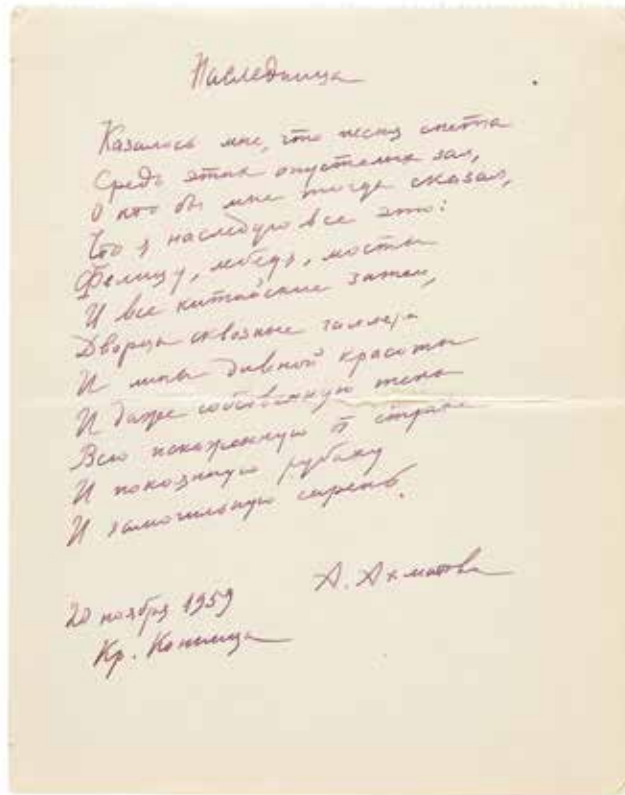 Наследница
Казалось мне, что песня спета
Средь этих опустелых зал,
О кто бы мне тогда сказал,
Что я наследую все это:
Фелицу, лебедя, мосты
И все китайские затеи,
Дворца сквозные галлереи
И липы дивной красоты
И даже собственную тень
Всю искаженную от страха
И покаянную рубаху
И замогильную сирень.
А. Ахматова
20 ноября 1959
Кр. Конница